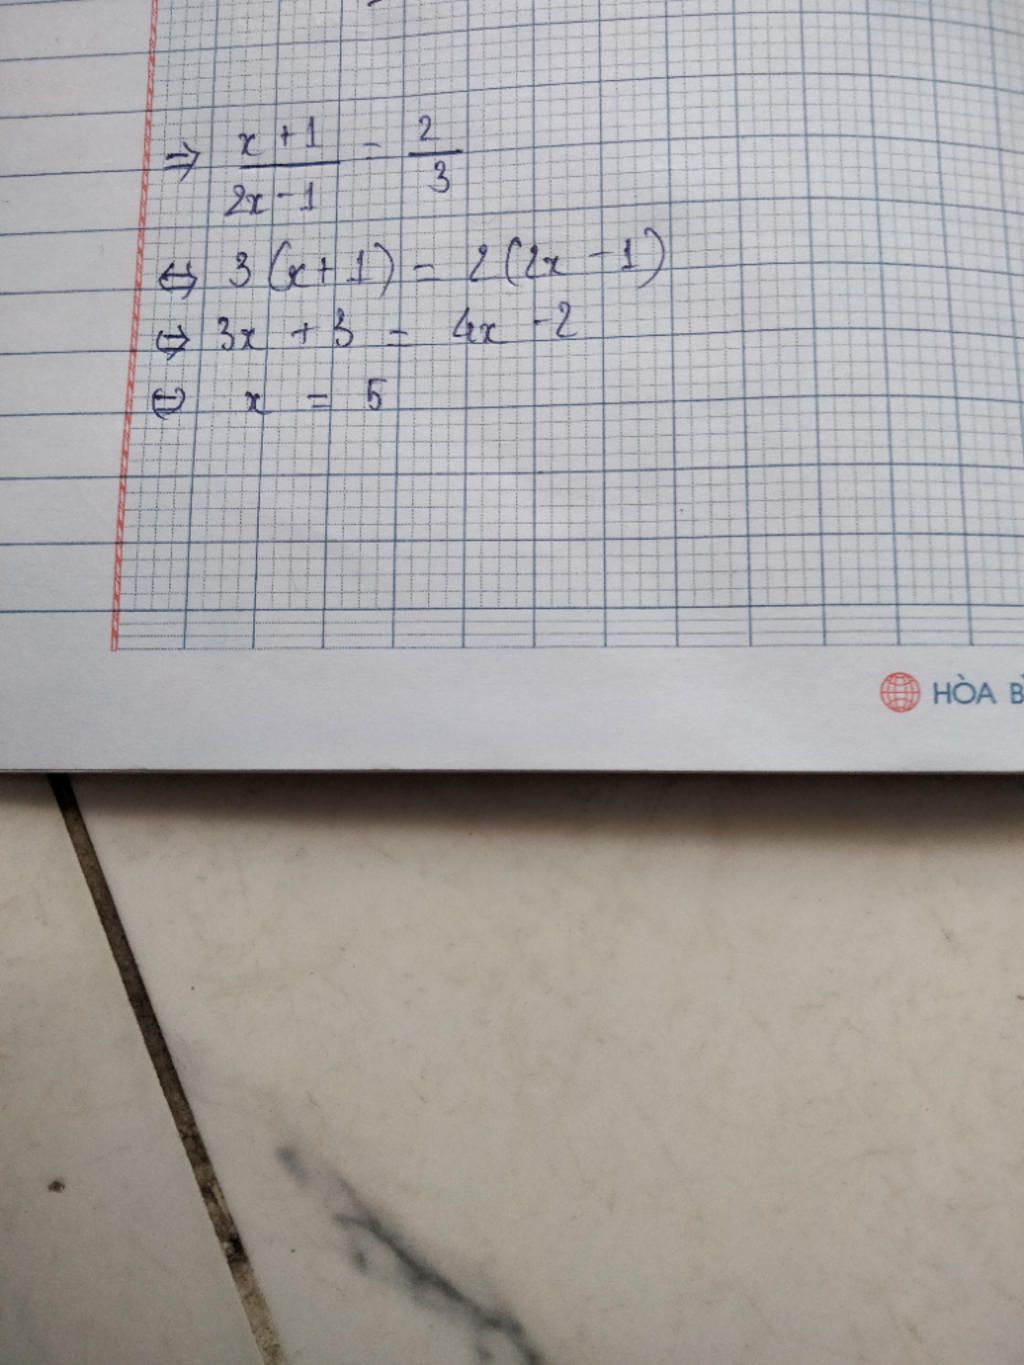 ⇒ x + 1 / 2x - 1 = 2 / 3
⇔ 3(x + 1) = 2(2x - 1)
⇔ 3x + 3 = 4x - 2
⇔ x = 5
HÒA B